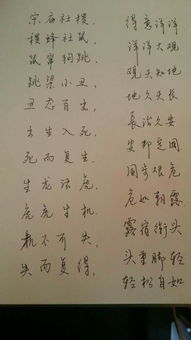 宗庙社稷,
稷蜂社鼠,
鼠窜狗跳,
跳梁小丑,
丑态百出,
出生入死,
死而复生,
生龙活虎,
虎虎生机,
机不可失,
失而复得,
得意洋洋
洋洋大观
观天知地
地久天長
長治久安
安邦定国
国步艰危
危如朝露
露宿街头
头重脚轻
轻松自如